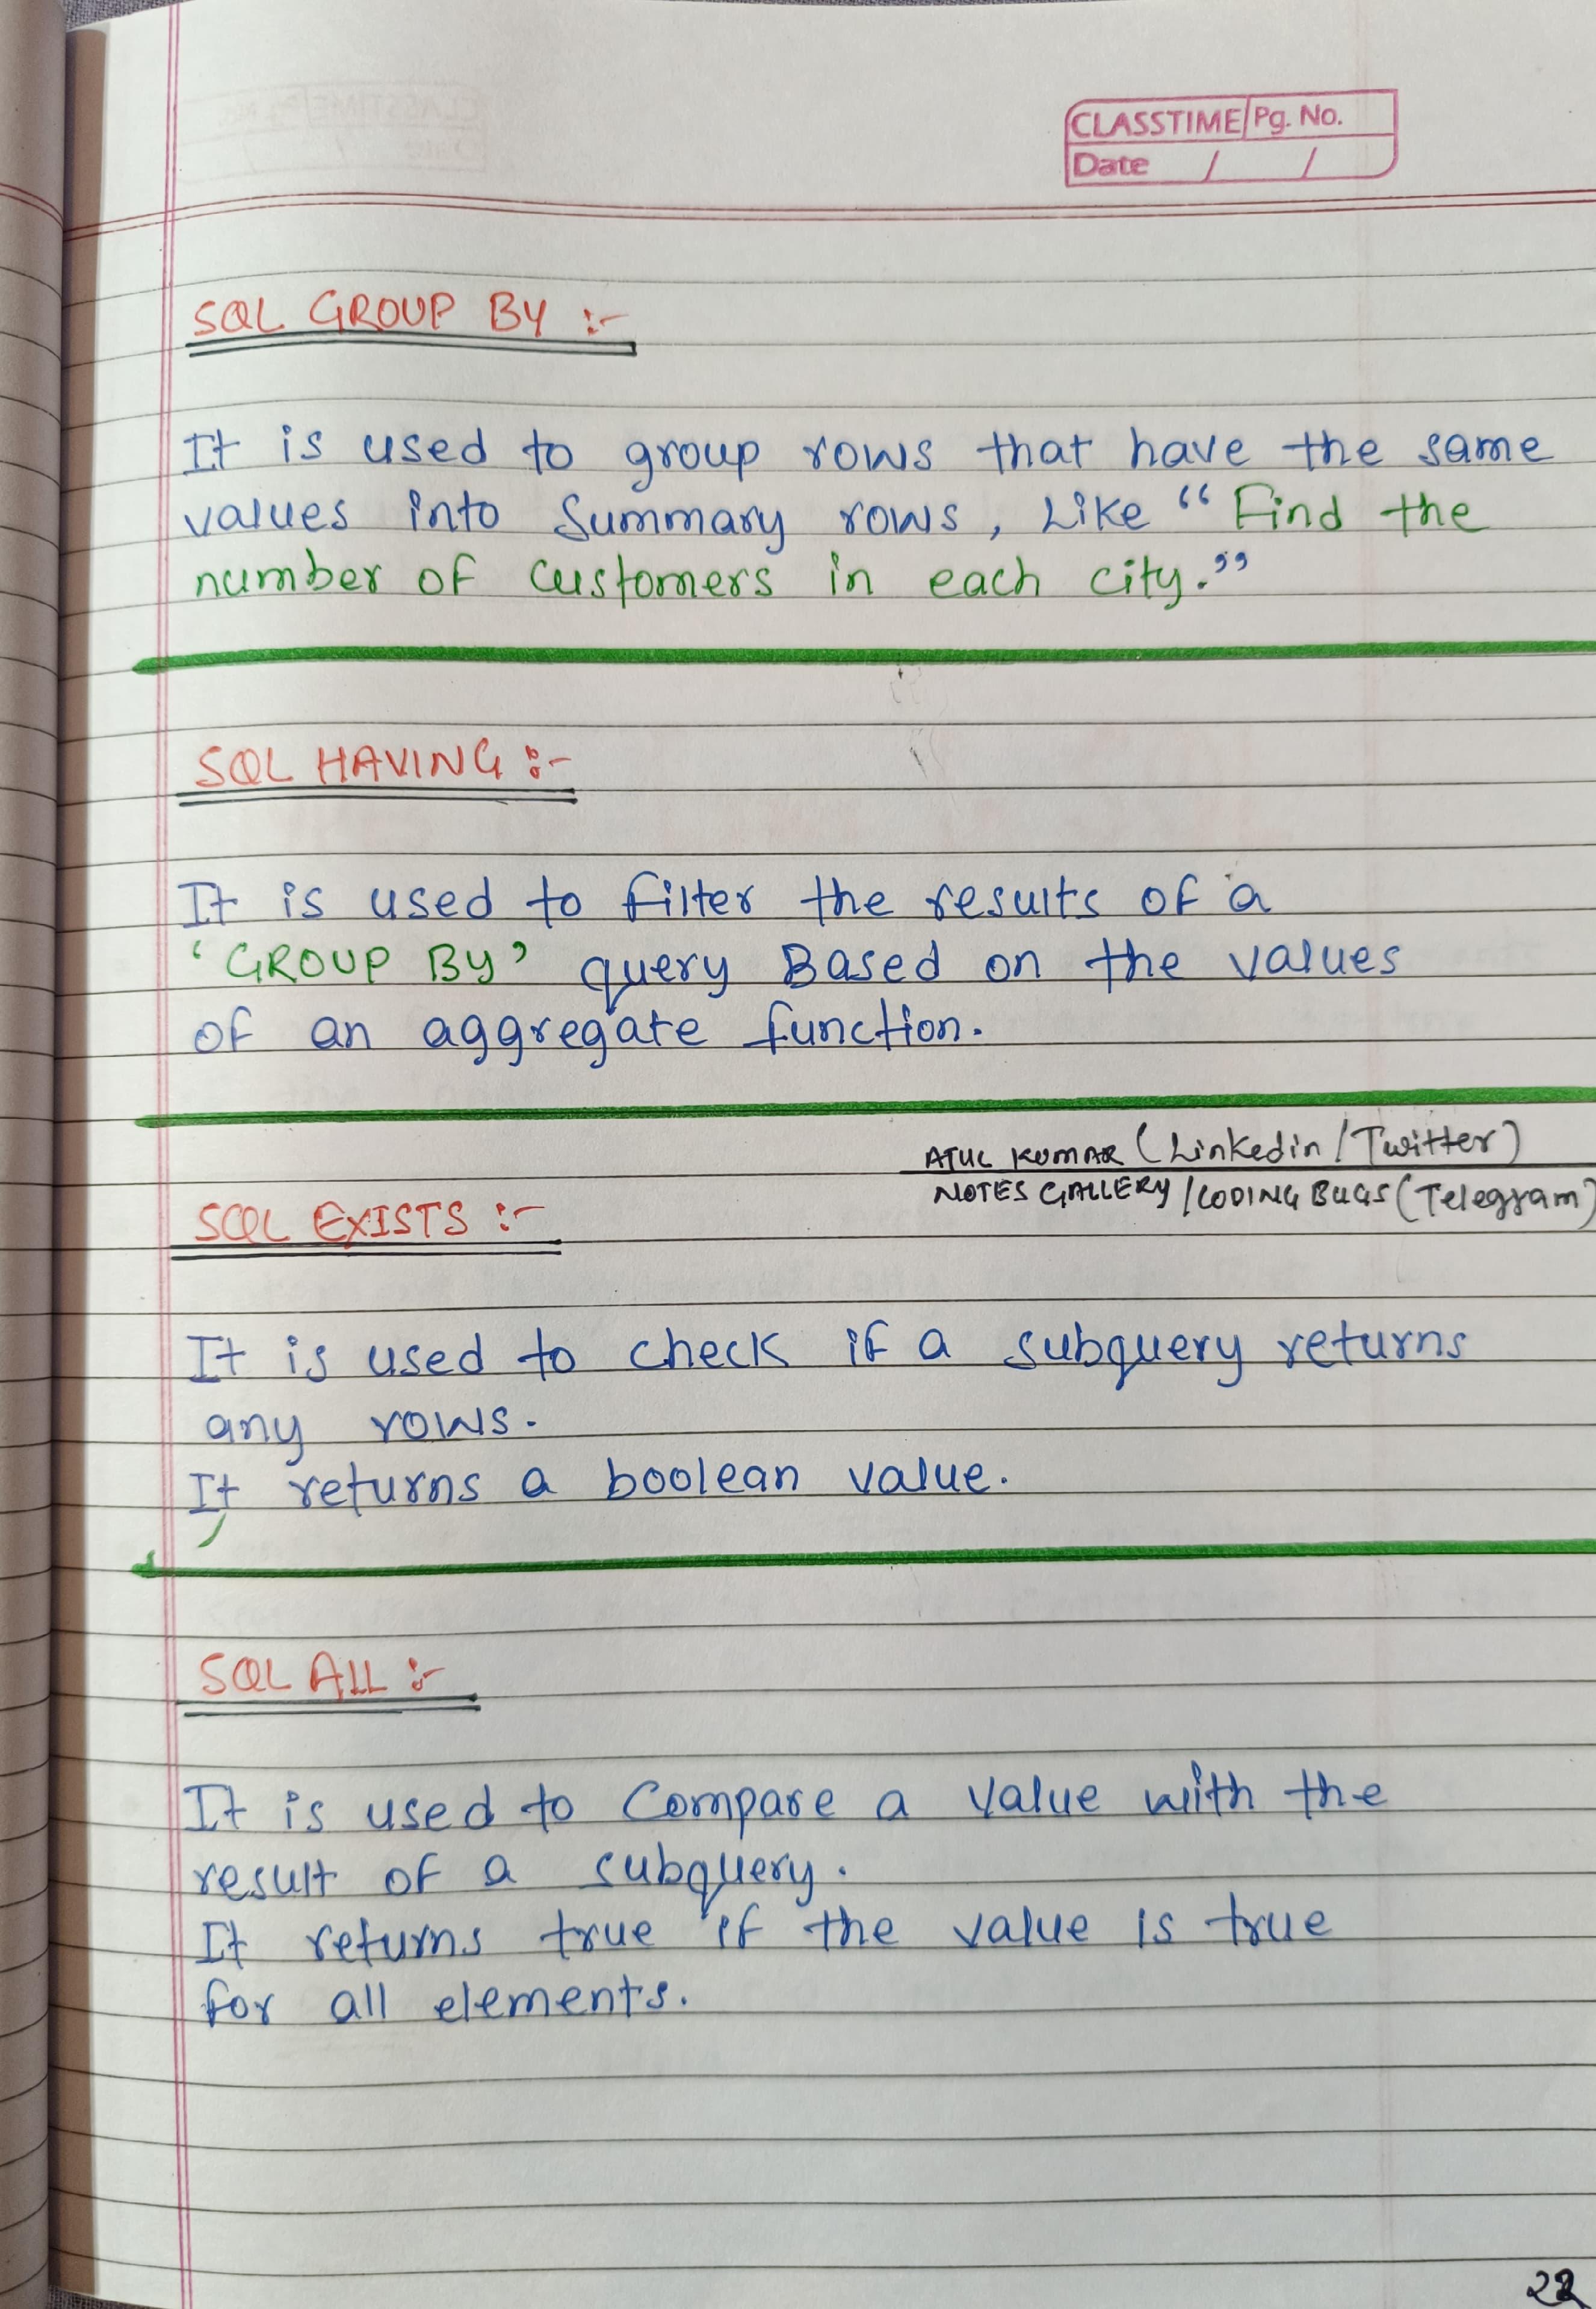 CLASSTIME Pg. No.
Date / /
SQL GROUP BY :-
It is used to group rows that have the same
values into Summary rows, Like “Find the
number of customers in each city.”
SQL HAVING :-
It is used to filter the results of a
‘GROUP BY’ query Based on the values
of an aggregate function.
ATUL KUMAR (Linkedin / Twitter)
NOTES GALLERY / CODING BUGS (Telegram)
SQL EXISTS :-
It is used to check if a subquery returns
any rows.
It returns a boolean value.
SQL ALL :-
It is used to Compare a value with the
result of a subquery.
It returns true if the value is true
for all elements.